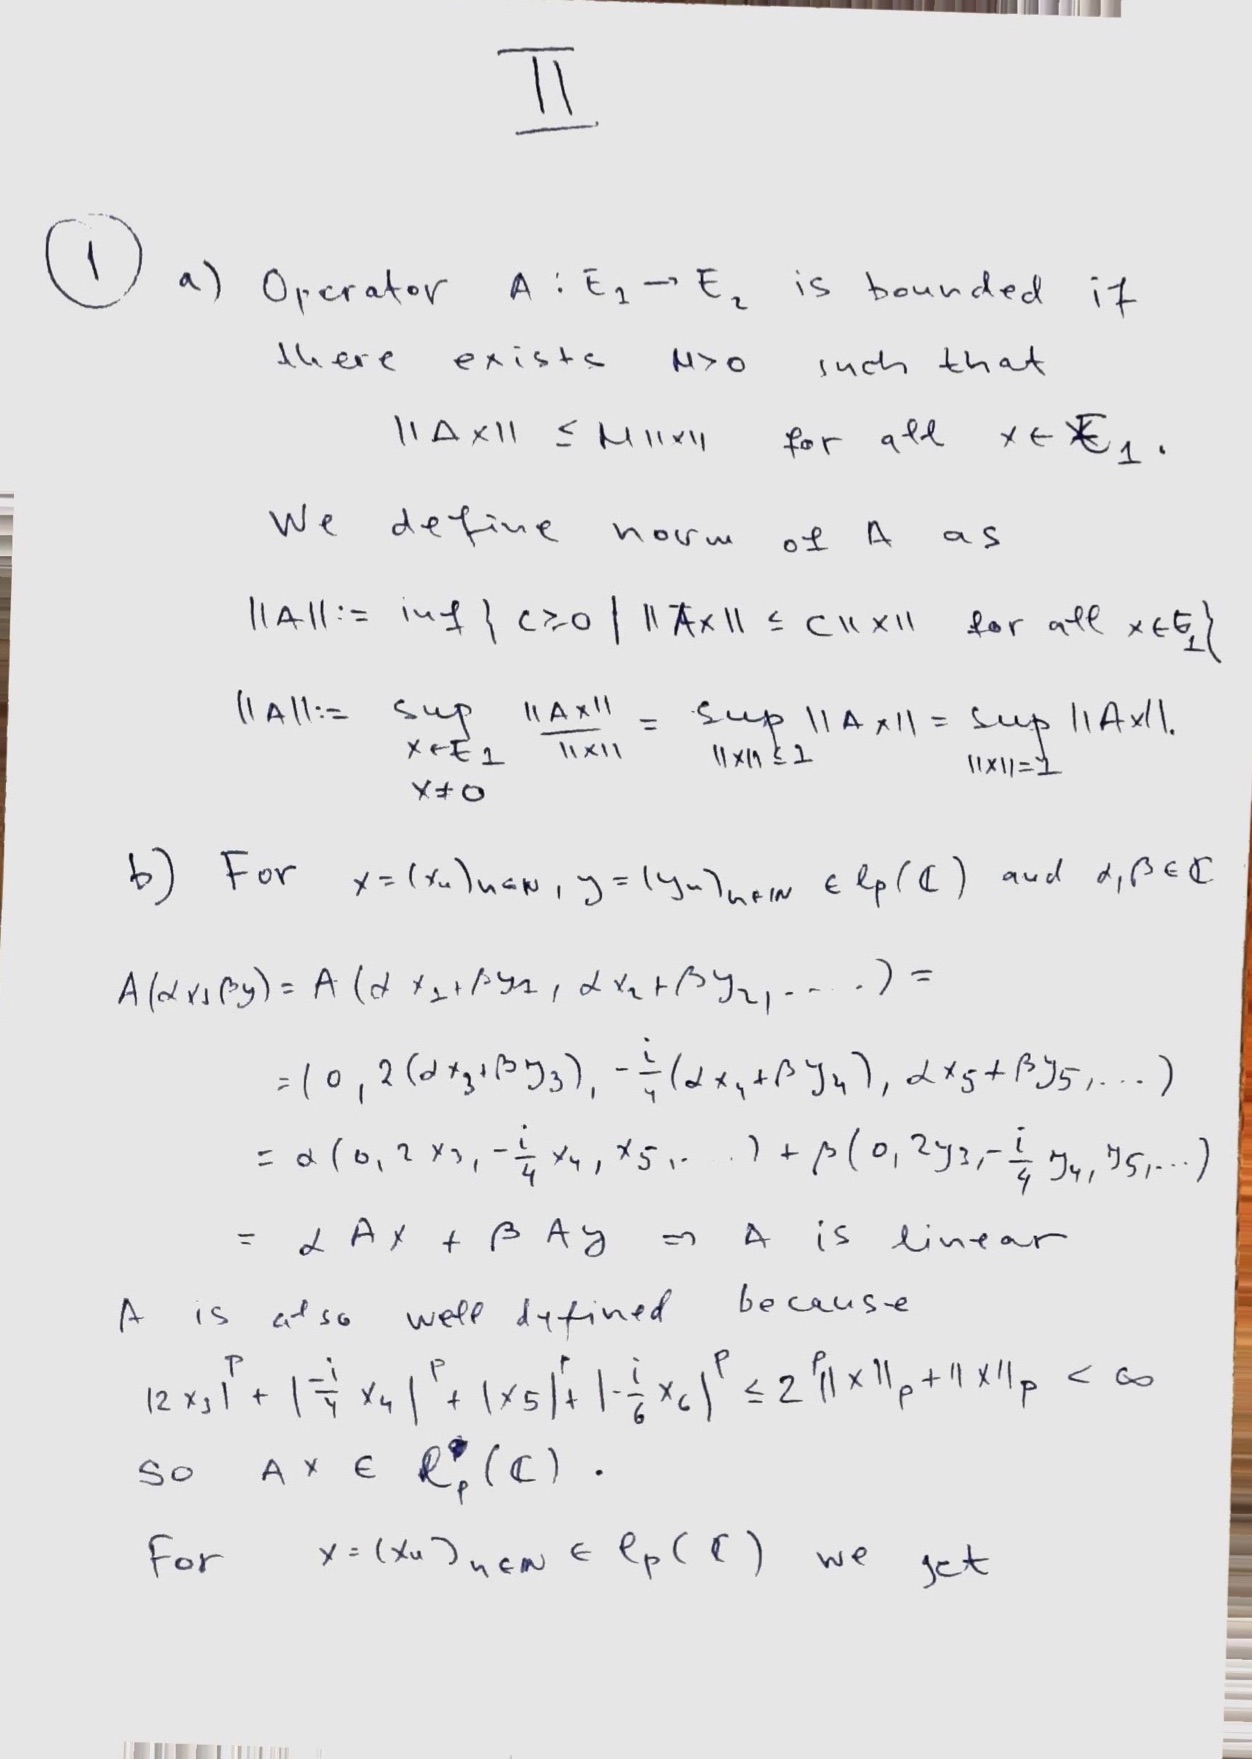 II
1 a) Operator A : E₁ → E₂ is bounded if
there exists M>0 such that
||Ax|| ≤ M||x|| for all x ∈ E₁.
We define norm of A as
||A||:= inf { c≥0 | ||Ax|| ≤ c||x|| for all x∈E₁}
||A||:= sup_{x∈E₁, x≠0} ||Ax||/||x|| = sup_{||x||≤1} ||Ax|| = sup_{||x||=1} ||Ax||.
b) For x=(xₙ)n∈ℕ, y=(yₙ)n∈ℕ ∈ ℓp(ℂ) and α,β∈ℂ
A(αx+βy) = A(αx₁+βy₁, αx₂+βy₂, ....) =
=(0, 2(αx₃+βy₃), -i/4(αx₄+βy₄), αx₅+βy₅, ...)
= α(0, 2x₃, -i/4 x₄, x₅, ...) + β(0, 2y₃, -i/4 y₄, y₅, ...)
= αAx + βAy ⇒ A is linear
A is also well defined because
|2x₃|ᵖ + |-i/4 x₄|ᵖ + |x₅|ᵖ + |-i/6 x₆|ᵖ ≤ 2ᵖ||x||p + ||x||p < ∞
so Ax ∈ ℓp(ℂ).
For x=(xₙ)n∈ℕ ∈ ℓp(ℂ) we get